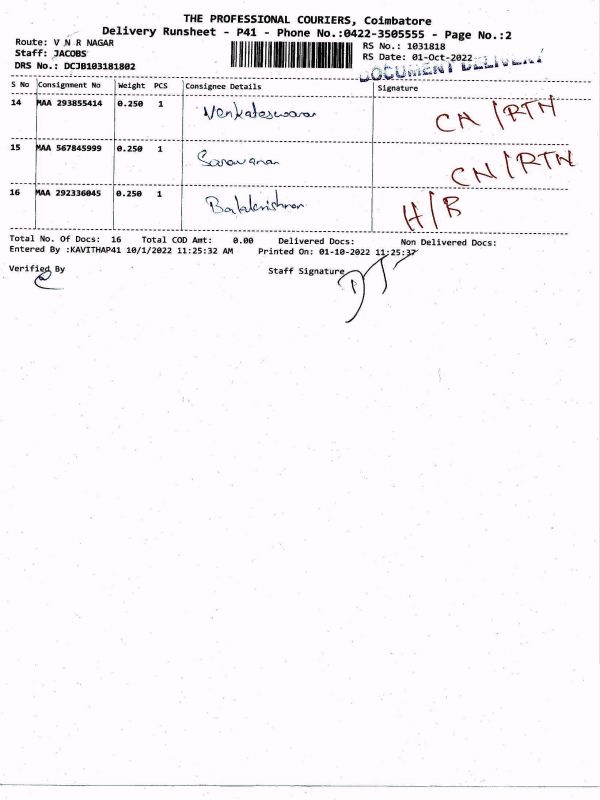 THE PROFESSIONAL COURIERS, Coimbatore
Delivery Runsheet - P41 - Phone No.:0422-3505555 - Page No.:2
Route: V N R NAGAR
RS No.: 1031818
Staff: JACOBS
RS Date: 01-Oct-2022
DRS No.: DCJB103181802
DOCUMENT DELIVERY
S No Consignment No Weight PCS Consignee Details Signature
14 MAA 293855414 0.250 1 Venkateswaran CN/RTN
15 MAA 567845999 0.250 1 Saravanan CN/RTN
16 MAA 292336045 0.250 1 Balakrishnan H/B
Total No. Of Docs: 16 Total COD Amt: 0.00 Delivered Docs: Non Delivered Docs:
Entered By :KAVITHAP41 10/1/2022 11:25:32 AM Printed On: 01-10-2022 11:25:37
Verified By Staff Signature